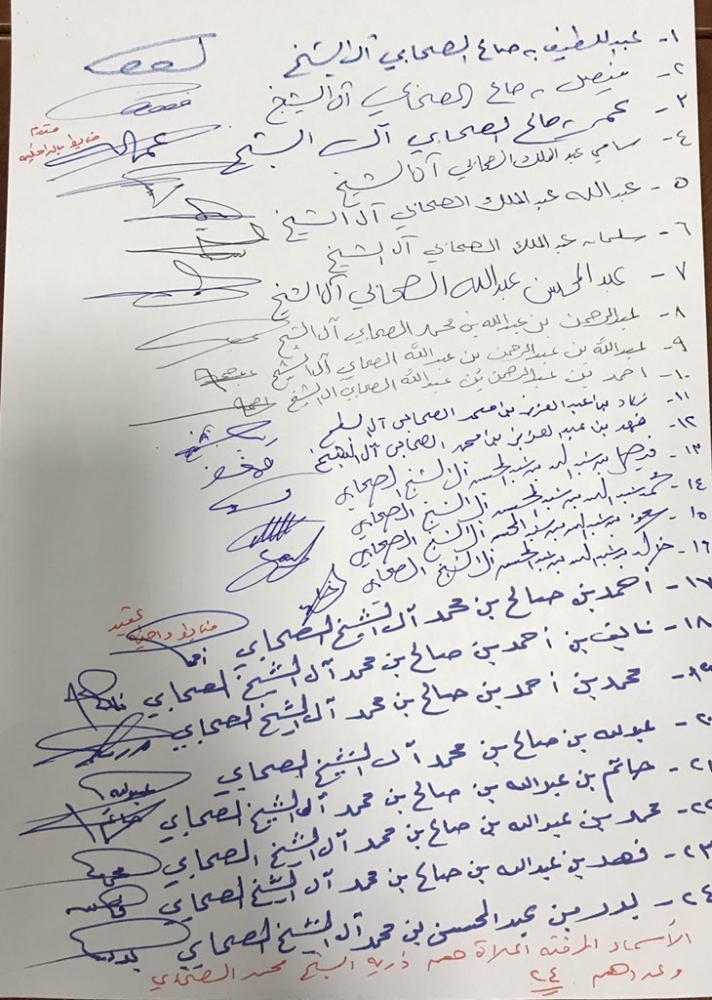 ١- عبداللطيف بن صالح الصحابي آل الشيخ
٢- فيصل بن صالح الصحابي آل الشيخ
٣- عمر بن صالح الصحابي آل الشيخ
مقدم
ضابط بالداخلية
٤- سامي عبد الملك الصحابي آل الشيخ
٥- عبدالله عبد الملك الصحابي آل الشيخ
٦- سلمان عبد الملك الصحابي آل الشيخ
٧- عبد المحسن عبدالله الصحابي آل الشيخ
٨- عبدالرحمن بن عبدالله بن محمد الصحابي آل الشيخ
٩- عبدالله بن عبدالرحمن بن عبدالله الصحابي آل الشيخ
١٠- احمد بن عبدالرحمن بن عبدالله الصحابي آل الشيخ
١١- زياد بن عبدالعزيز بن محمد الصحابي آل الشيخ
١٢- فهد بن عبدالعزيز بن محمد الصحابي آل الشيخ
١٣- فيصل بن عبدالله بن عبدالمحسن آل الشيخ الصحابي
١٤- محمد بن عبدالله بن عبدالمحسن آل الشيخ الصحابي
١٥- سعود بن عبدالله بن عبدالمحسن آل الشيخ الصحابي
١٦- بن عبدالله بن عبدالمحسن آل الشيخ الصحابي
١٧- احمد بن صالح بن محمد آل الشيخ الصحابي
عقيد
ضابط داخلية
١٨- نايف بن احمد بن صالح بن محمد آل الشيخ الصحابي
١٩- محمد بن احمد بن صالح بن محمد آل الشيخ الصحابي
٢٠- عبدالله بن صالح بن محمد آل الشيخ الصحابي عبدالله
٢١- حاتم بن عبدالله بن صالح بن محمد آل الشيخ الصحابي حاتم
٢٢- محمد بن عبدالله بن صالح بن محمد آل الشيخ الصحابي
٢٣- فهد بن عبدالله بن صالح بن محمد آل الشيخ الصحابي
٢٤- بدر بن عبدالمحسن بن محمد آل الشيخ الصحابي بدر
الأسماء المرفقه اعلاة هم ذرية الشيخ محمد الصحابي
وعددهم ٢٤